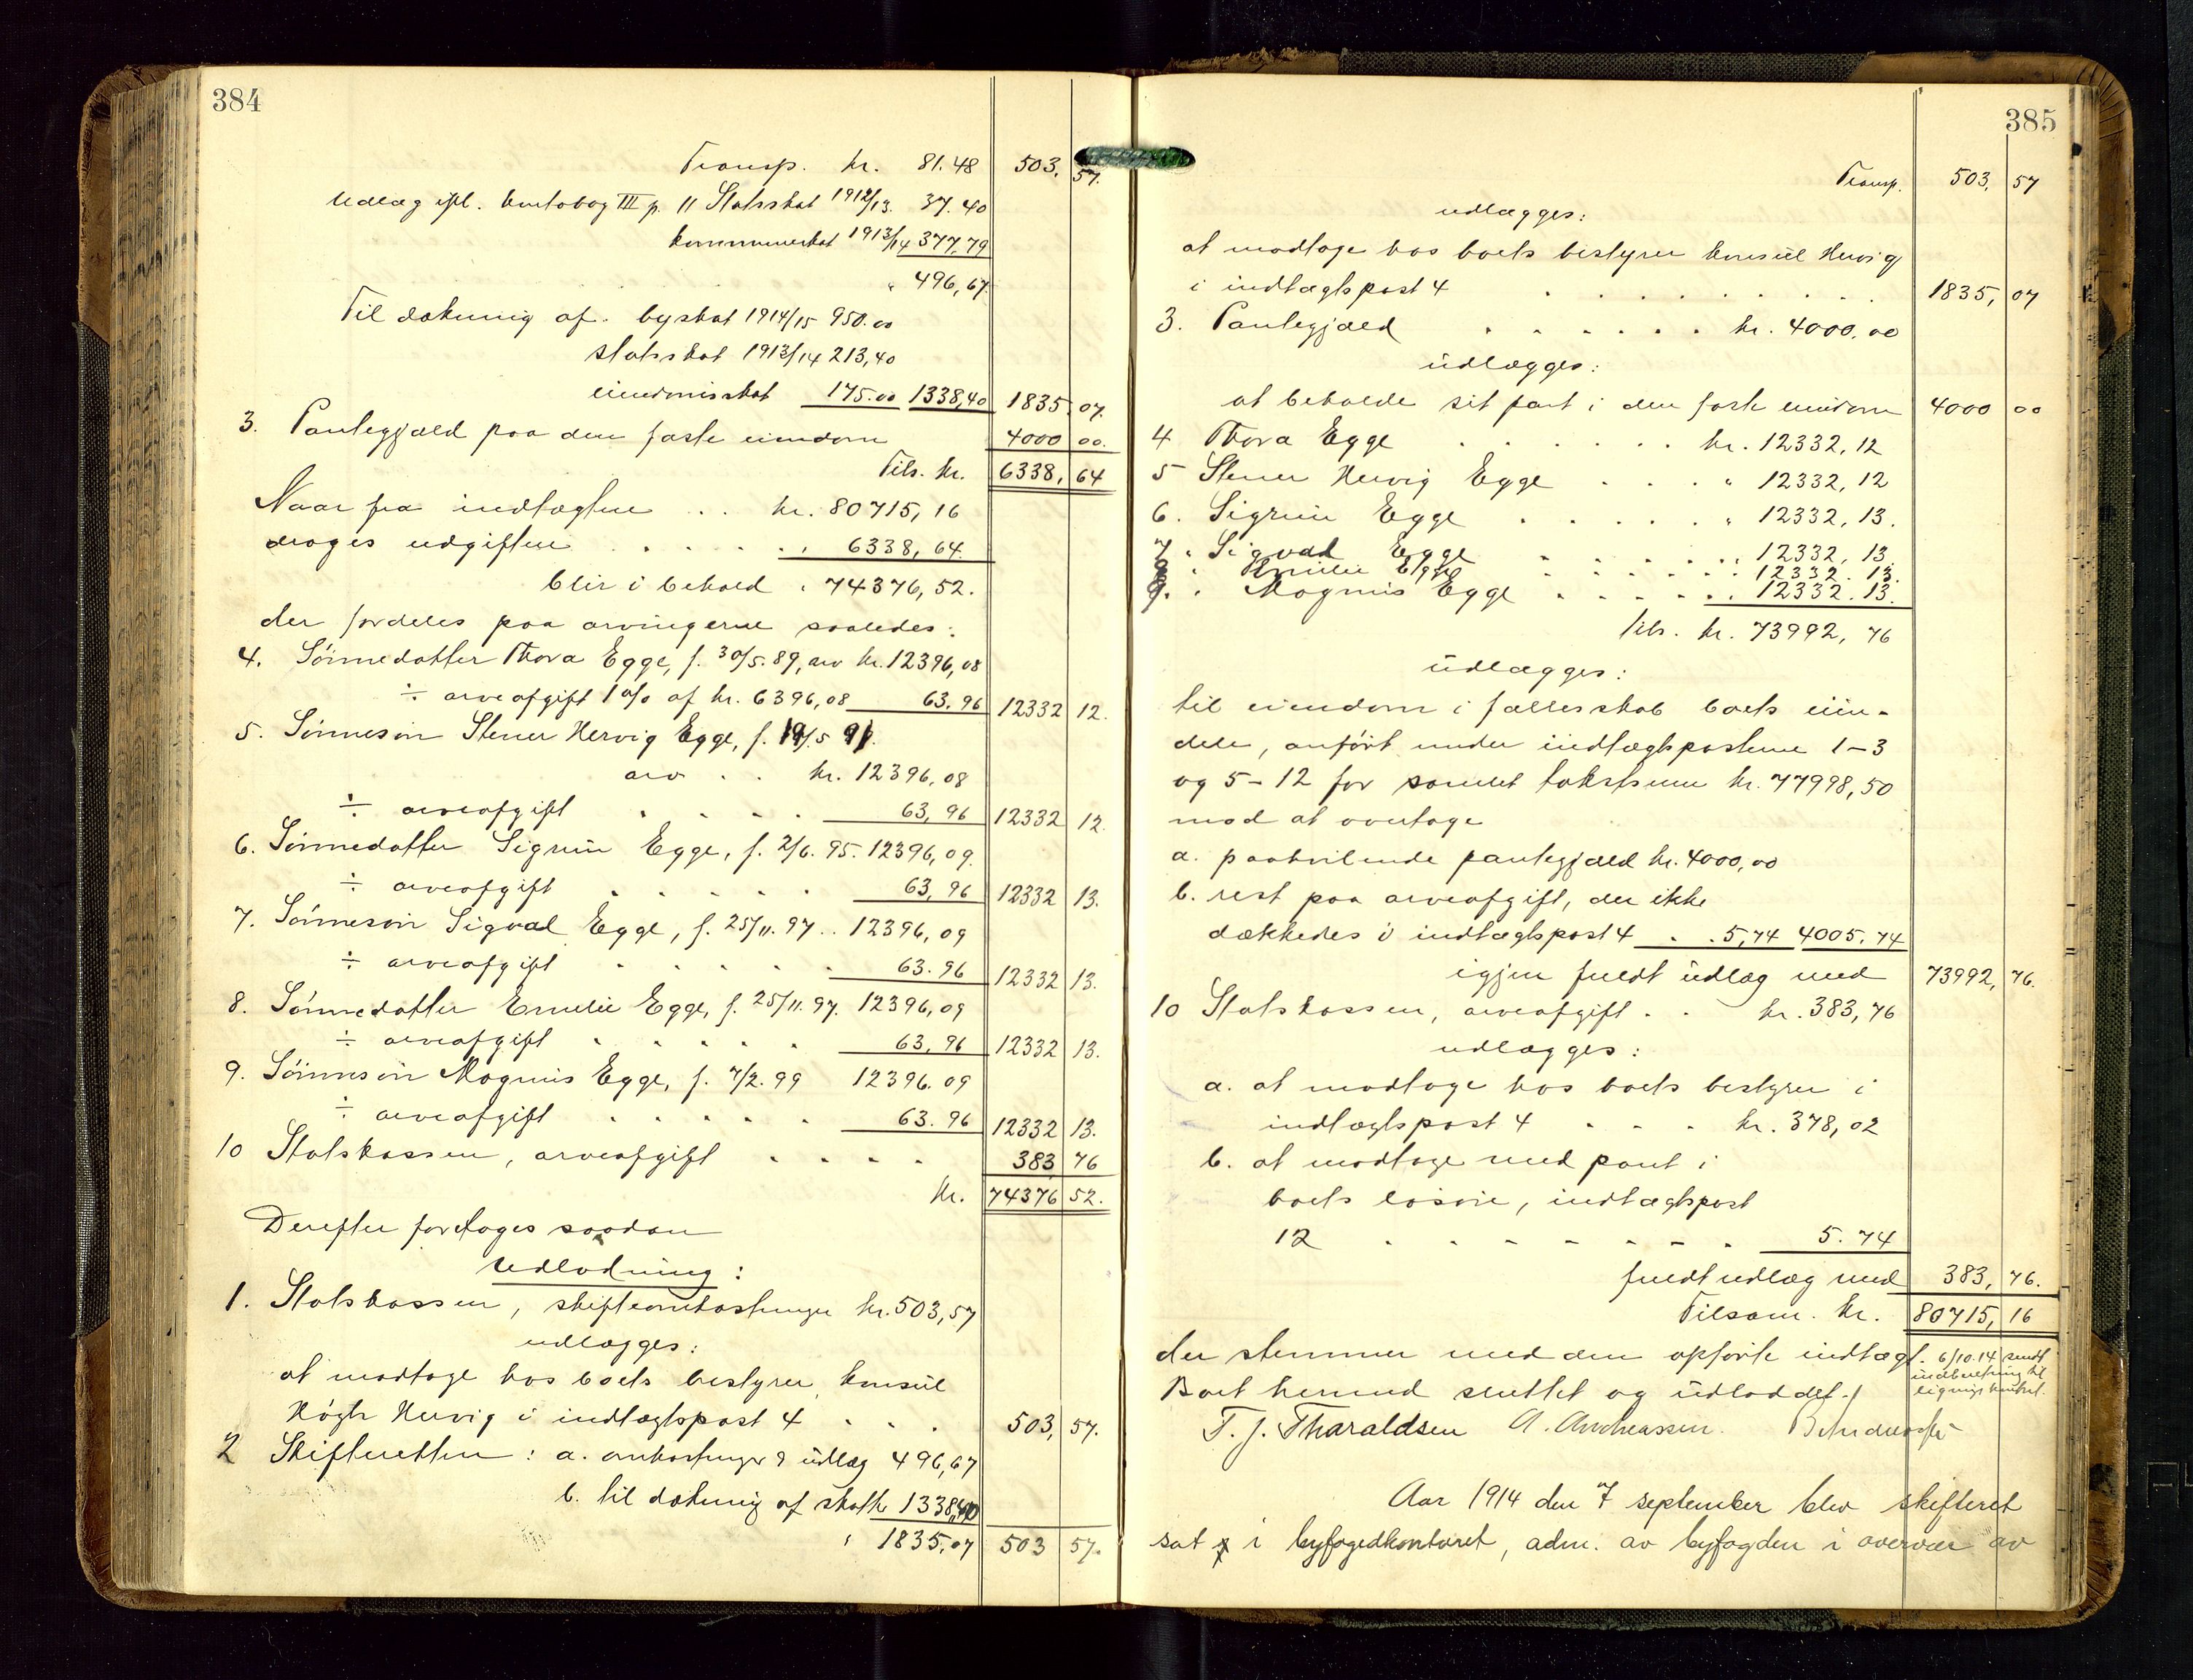 384
Transp. kr. 81.48 503, 57.
Udlæg ifl. kontobog III p. 11 Statsskat 1912/13. 37.40
kommuneskat 1913/14 377,79
" 496,67
Til dækning af. byskat 1914/15 950.00
statsskat 1913/14 213,40
eiendomsskat 175.00 1338,40 1835,07.
3. Pantegjæld paa den faste eiendom 4000 00.
Tils. kr. 6338, 64
Naar fra indtægterne .. kr. 80715,16
drages udgifterne . . . . " 6338,64.
blir i behold " 74376,52.
der fordeles paa arvingerne saaledes:
4. Sønnedatter Thora Egge, f. 30/5.89, arv kr. 12396,08
÷ arveafgift 1 o/o af kr. 6396,08 63.96 12332 12.
5. Sønnesøn Stener Hervig Egge, f. 19/5 91.
arv . . kr. 12396,08
÷ arveafgift . . . . 63,96 12332 12.
6. Sønnedatter Sigrun Egge, f. 2/6. 95. 12396,09.
÷ arveafgift . . . . . 63,96 12332 13.
7. Sønnesøn Sigval Egge, f. 25/11.97 .. 12396,09
÷ arveafgift . . . . . 63.96 12332 13.
8. Sønnedatter Emelie Egge, f. 25/11.97. 12396,09
÷ arveafgift . . . . . 63,96 12332 13.
9. Sønnesøn Magnus Egge, f. 7/2.99 12396.09
÷ arveafgift . . . . . 63.96 12332 13.
10 Statskassen, arveafgift . . . . 383 76
Kr. 74376 52.
Derefter foretages saadan
Udlodning:
1. Statskassen, skifteomkostninger kr. 503,57
udlægges:
at modtage hos boets bestyrer, konsul
Høgh Hervig i indtægtspost 4 . . . 503, 57.
2 Skifteretten: a. omkostninger & udlæg 496,67
b. til dækning af skatte 1338,40
" 1835,07 503 57.
385
Transp. 503, 57
udlægges:
at modtage hos boets bestyrer konsul Hervig
i indtægtspost 4 . . . . . . . . 1835, 07
3. Pantegjæld . . . . . . kr. 4000,00
udlægges:
at beholde sit pant i den faste eiendom 4000 00
4 Thora Egge . . . . . . kr. 12332,12
5 Stener Hervig Egge . . . " 12332,12
6. Sigrun Egge . . . . . " 12332,13.
7. Sigvad Egge . . . . . " 12332,13
8. Emelie Egge . . . . . " 12332.13.
9. Magnus Egge . . . . . " 12332.13.
Tils. kr. 73992,76
udlægges:
til eiendom i fællesskab boets eien-
dele, anført under indtægtsposterne 1-3
og 5-12 for samlet takstsum kr. 77998,50
mod at overtage
a. paahvilende pantegjæld kr. 4000,00
b. rest paa arveafgift, der ikke
dækkedes i indtægtspost 4 . . 5,74 4005.74
igjen fuldt udlæg med 73992, 76.
10 Statskassen, arveafgift . . kr. 383,76
udlægges:
a. at modtage hos boets bestyrer i
indtægtspost 4 . . . kr. 378,02
b. at modtage med pant i
boets løsøre, indtægtspost
12 . . . . . . . . 5.74
fuldt udlæg med 383, 76.
Tilsam. Kr. 80715, 16
der stemmer med den opførte indtægt.
6/10.14 sendt indberetning til ligningskontoret.
Boet hermed sluttet og udloddet./
T. J. Tharaldsen A. Andreassen.
Aar 1914 den 7 september blev skifteret
sat i byfogedkontoret, adm. av byfogden i overvær av